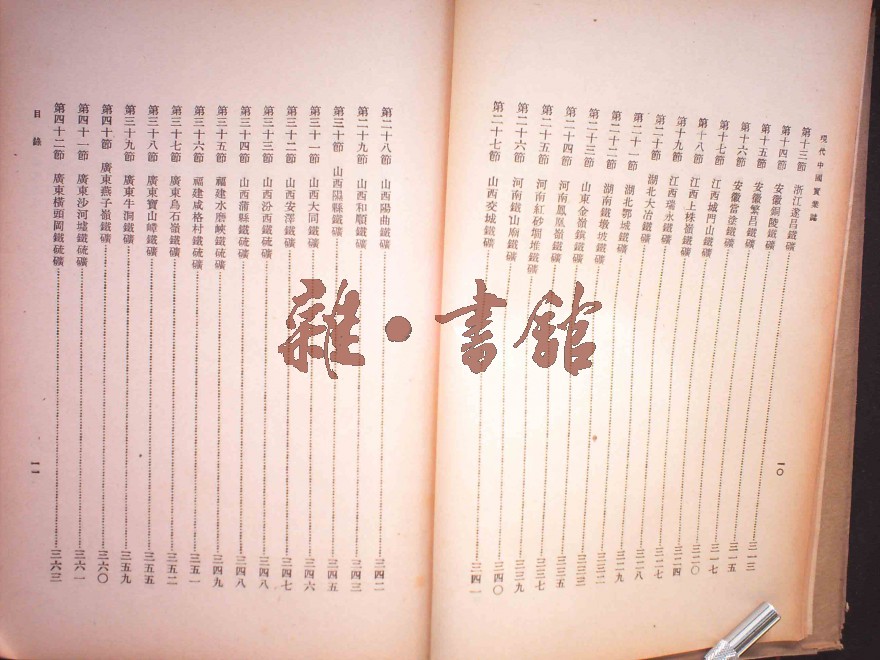 現代中國實業誌
第十三節 浙江遂昌鐵礦……三一三
第十四節 安徽銅陵鐵礦……三一五
第十五節 安徽繁昌鐵礦……三一七
第十六節 安徽當塗鐵礦……三二〇
第十七節 江西城門山鐵礦……三二四
第十八節 江西上株嶺鐵礦……三二七
第十九節 江西瑞永鐵礦……三二八
第二十節 湖北大冶鐵礦……三二九
第二十一節 湖北鄂城鐵礦……三三二
第二十二節 湖南鐵墩坡鐵礦……三三三
第二十三節 山東金嶺鎮鐵礦
第二十四節 河南鳳凰嶺鐵礦
第二十五節 河南紅砂堌堆鐵礦……三三七
第二十六節 河南鐵山廟鐵礦……三三九
第二十七節 山西交城鐵礦……三四一
一〇
第二十八節 山西陽曲鐵礦……三四二
第二十九節 山西和順鐵礦……三四三
第三十節 山西陽縣鐵礦……三四五
第三十一節 山西大同鐵礦……三四六
第三十二節 山西安澤鐵礦……三四七
第三十三節 山西汾西鐵硫礦……三四八
第三十四節 山西蒲縣鐵硫礦……三四八
第三十五節 福建水磨峽鐵硫礦……三四九
第三十六節 福建咸格村鐵硫礦……三五一
第三十七節 廣東烏石嶺鐵礦……三五二
第三十八節 廣東寶山嶂鐵礦……三五五
第三十九節 廣東牛洞鐵礦……三五九
第四十節 廣東燕子嶺鐵礦……三六〇
第四十一節 廣東沙河墟鐵硫礦……三六一
第四十二節 廣東橫頭岡鐵硫礦……三六三
目錄
一一
雜·書館